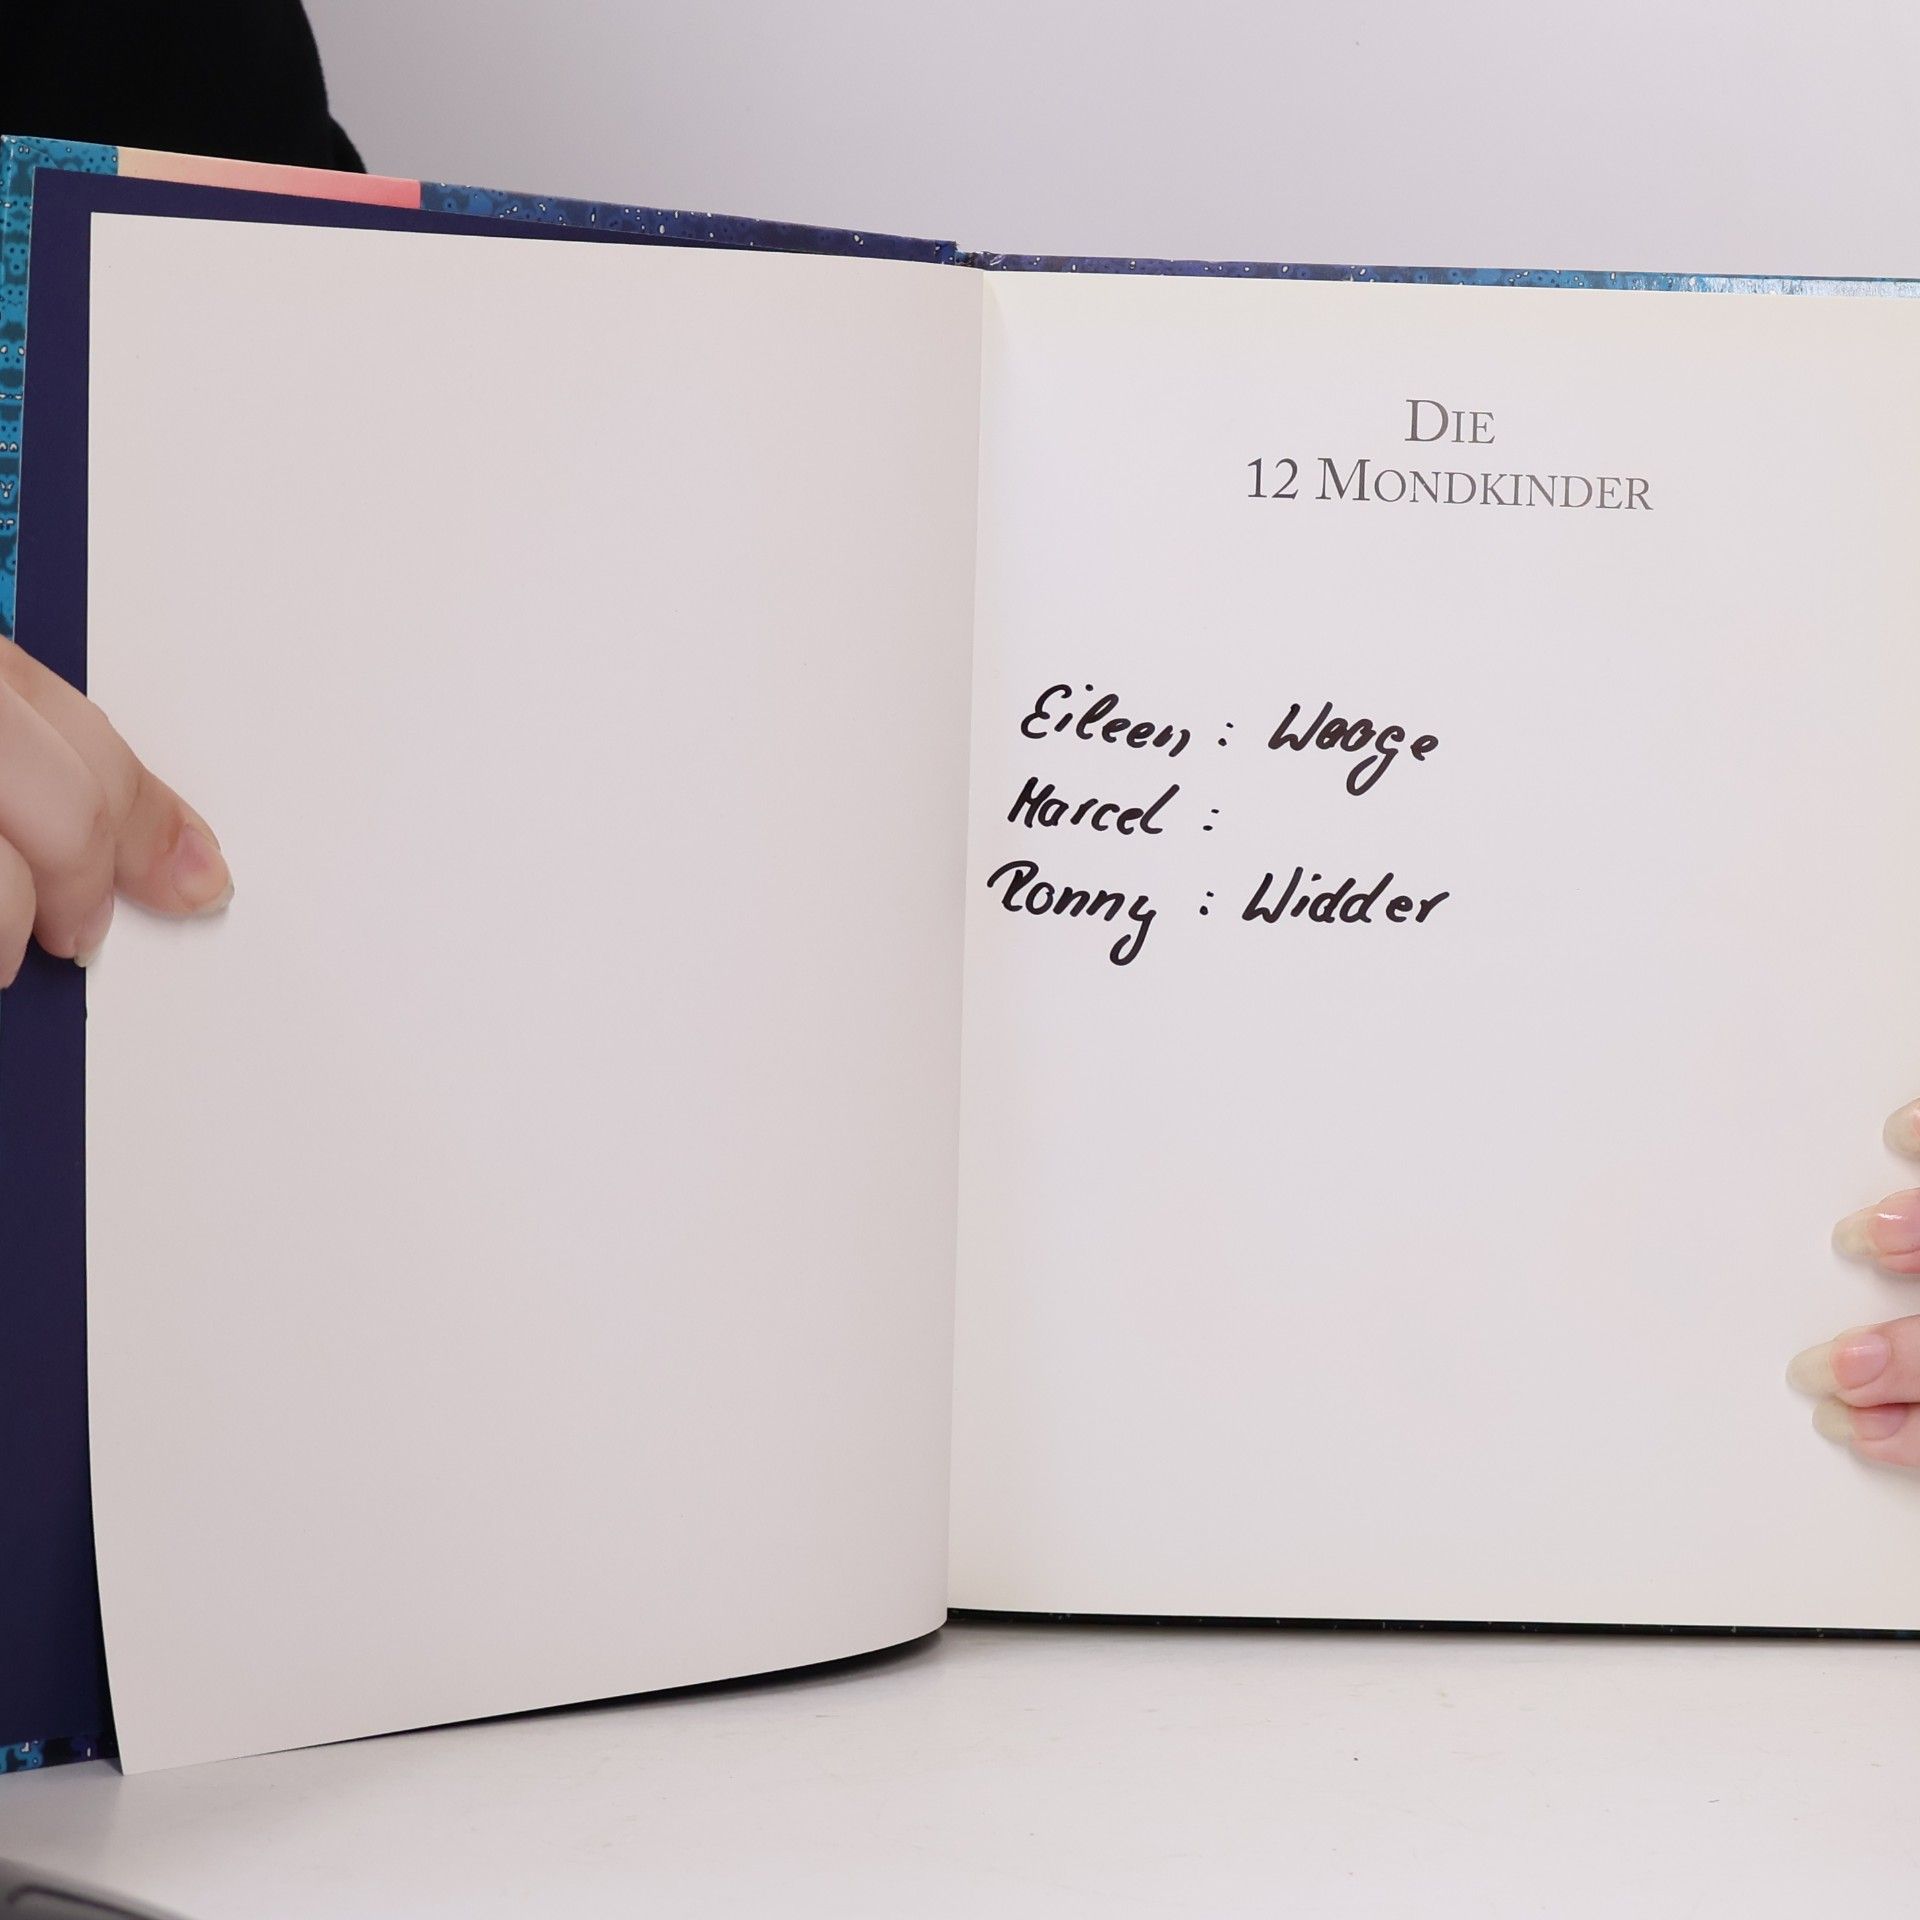 DIE
12 MONDKINDER
Eileen : Waage
Marcel :
Ronny : Widder